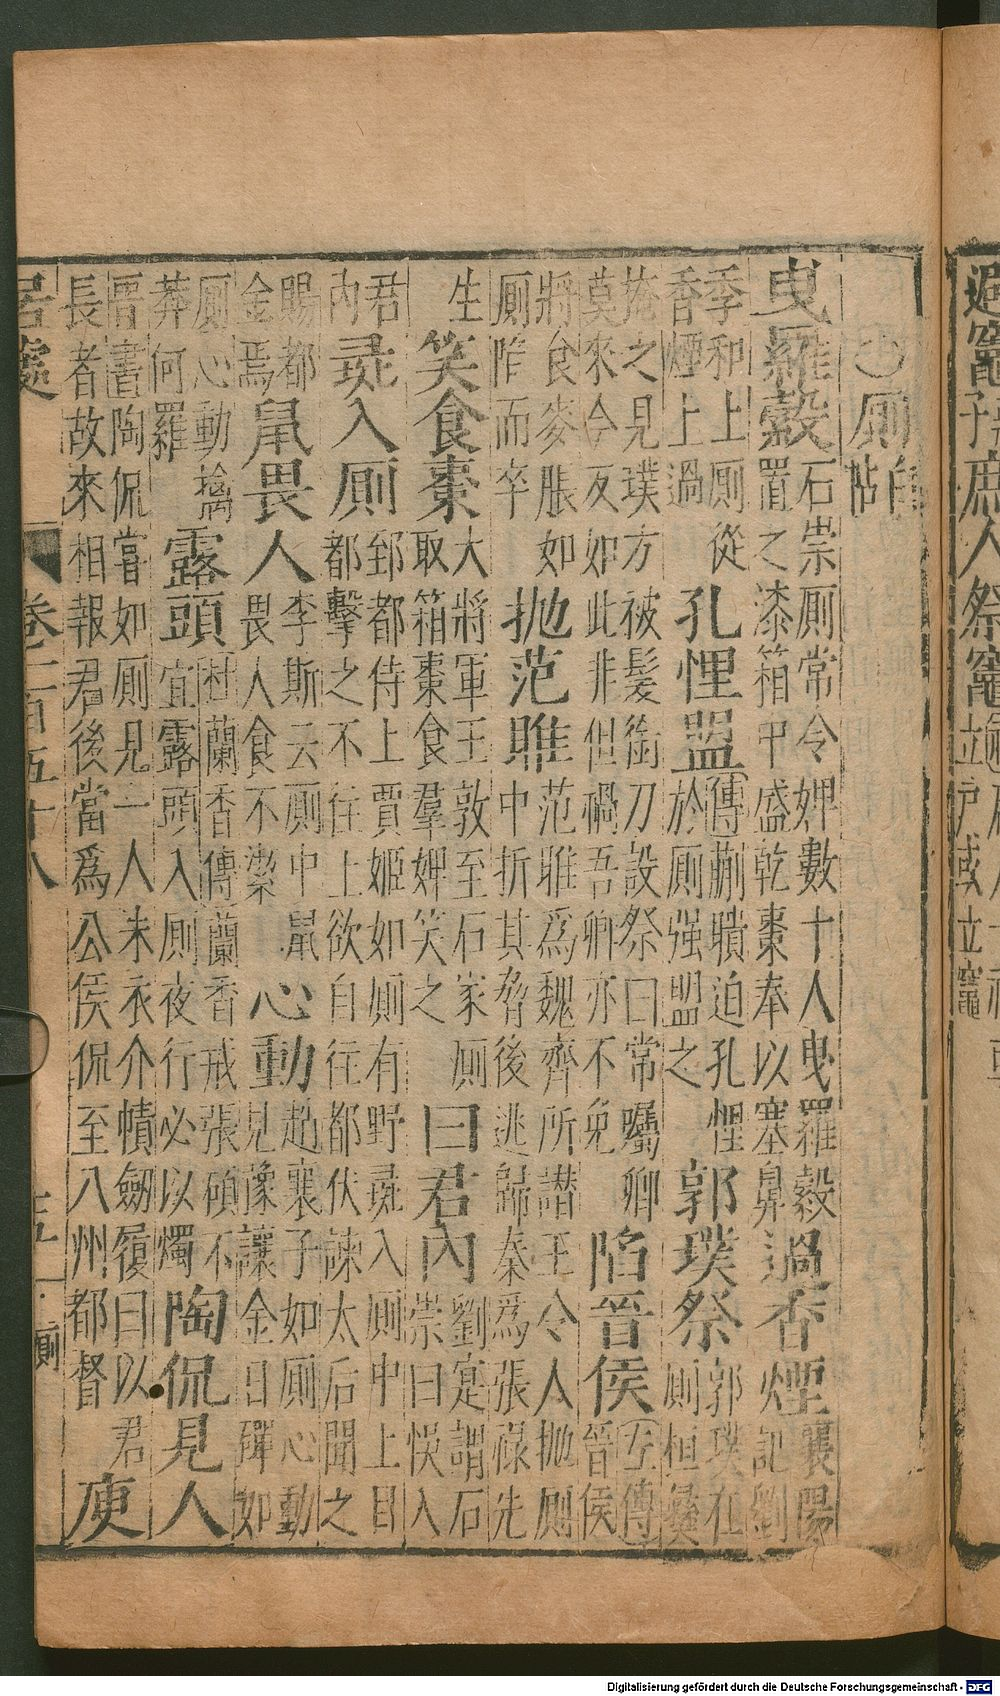 廁
白
帖
曳羅縠
石崇厠常令婢數十人曳羅縠
置之漆箱中盛乾棗奉以塞鼻
過香煙
襄陽
記劉
季和上厠從
香煙上過
孔悝盟
傳蒯聵迫孔悝
於厠强盟之
郭璞祭
郭璞在
厠桓彝
掩之見璞方被髮銜刀設祭曰常囑卿
莫來今反如此非但禍吾卿亦不免
陷晉侯
左傳
晉侯
將食麥脹如
厠陷而卒
拋范雎
范雎爲魏齊所譖王令人拋厠
中折其脅後逃歸秦爲張祿先
生
笑食棗
大將軍王敦至石家厠
取箱棗食羣婢笑之
曰君內
劉寔謂石
崇曰悞入
君
內
彘入厠
郅都侍上賈姬如厠有野彘入厠中上目
都擊之不往上欲自往都伏諫太后聞之
賜都
金焉
鼠畏人
李斯云厠中鼠
畏人食不潔
心動
趙襄子如厠心動
見豫讓金日磾如
厠心動擒
莽何羅
露頭
杜蘭香傳蘭香戒張碩不
宜露頭入厠夜行必以燭
陶侃見人
晉書陶侃嘗如厠見一人朱衣介幘劔履曰以君
長者故來相報君後當爲公侯侃至八州都督
庾
居處 卷一百五十八 十五 廁
庶人祭竈
立戶或立竈
Digitalisierung gefördert durch die Deutsche Forschungsgemeinschaft - DFG